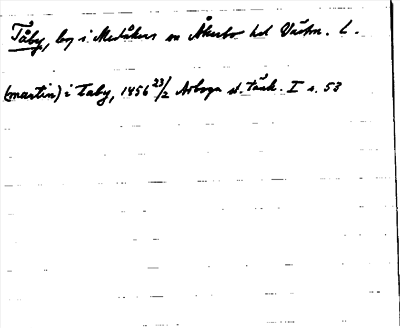 Tåby, by i Medåkers sn Åkerbo hd Västm. L.
(martin) i taby, 1456 23/2 Arboga st. tänk. I s. 53